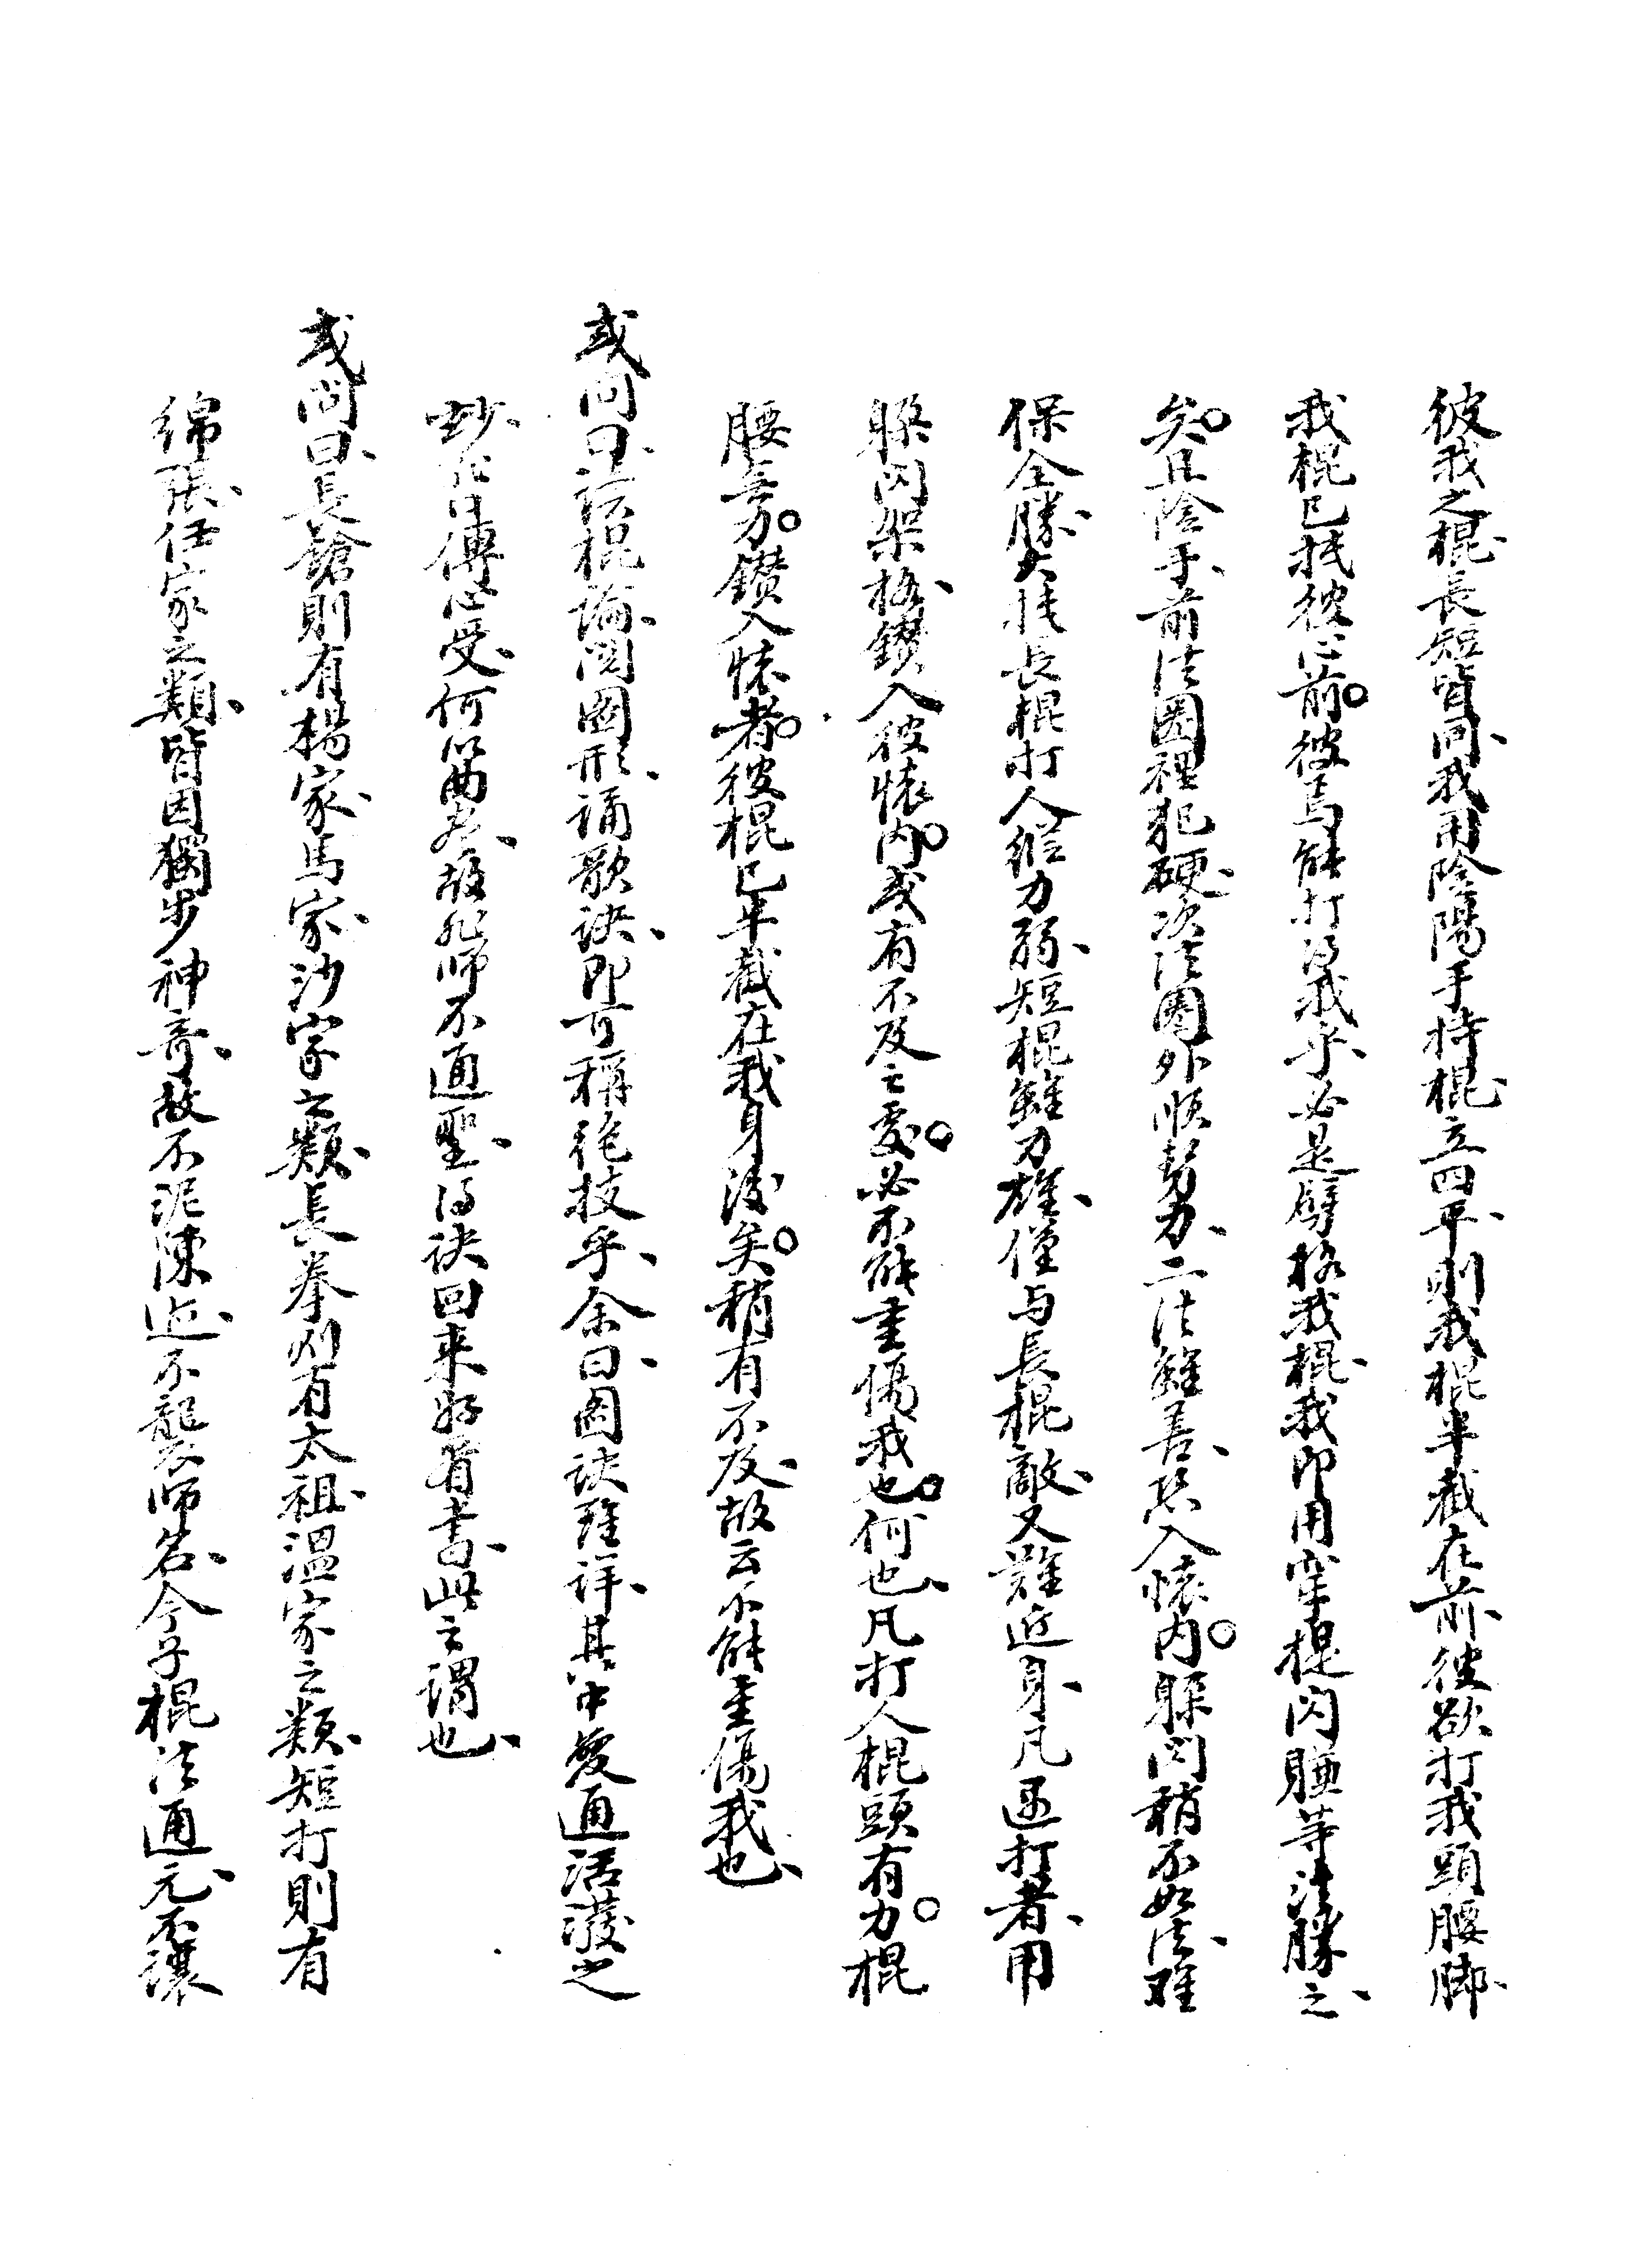 彼我之棍、長短皆同、我用陰陽手持棍、立四平、則我棍半截在前、彼欲打我頭腰脚、
我棍已抵彼心前。彼焉能打得我乎、必是劈格我棍、我即用穿提閃賺等法勝之、
矣。且陰手、前法圈裡犯硬、次法圈外順勢力、二法雖善、恐入懐内。躱閃稍不如法、难
保全勝、大抵長棍打人縱力弱、短棍雖力雄、僅与長棍敵、又難近身、凡遇打者、用
躱閃架格、鑚入彼懐内。或有不及之處。必不能重傷我也。何也、凡打人棍頭有力。棍
腰無力。鑚入懐者。彼棍已半截在我身後矣。稍有不及、故云不能重傷我也、
或问曰、該棍論、閱圖形、誦歌訣、即可稱絶技乎、余曰、圖訣雖詳、其中變通活潑之
妙、非口傳心受、何以曲尽、故凢師不通聖、得訣回来好看書、此之謂也、
或問曰、長鎗則有楊家、馬家、沙家之類、長拳则有太祖、温家之類、短打則有
绵張、任家之類、皆因獨步神奇、故不泥陳迹、不襲師名、今子棍法通元、不讓